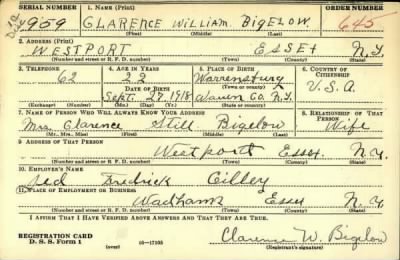 SERIAL NUMBER 1. NAME (Print) ORDER NUMBER
959 CLARENCE WILLIAM BIGELOW 645
(First) (Middle) (Last)
2. ADDRESS (Print)
WESTPORT ESSEX N.Y
(Number and street or R. F. D. number) (Town) (County) (State)
3. TELEPHONE 4. AGE IN YEARS 5. PLACE OF BIRTH 6. COUNTRY OF CITIZENSHIP
62 22 Warrensburg
DATE OF BIRTH (Town or county)
Sept. 27, 1918 Warren Co. N.Y. U.S.A.
(Exchange) (Number) (Mo.) (Day) (Yr.) (State or country)
7. NAME OF PERSON WHO WILL ALWAYS KNOW YOUR ADDRESS 8. RELATIONSHIP OF THAT PERSON
Mrs. Clarence Still Bigelow Wife
(Mr., Mrs., Miss) (First) (Middle) (Last)
9. ADDRESS OF THAT PERSON
Westport Essex N.Y.
(Number and street or R. F. D. number) (Town) (County) (State)
10. EMPLOYER'S NAME
Fredrick Cilley
11. PLACE OF EMPLOYMENT OR BUSINESS
Wadhams Essex N.Y.
(Number and street or R. F. D. number) (Town) (County) (State)
I AFFIRM THAT I HAVE VERIFIED ABOVE ANSWERS AND THAT THEY ARE TRUE.
REGISTRATION CARD
D. S. S. Form 1 (over) 16—17105 Clarence W. Bigelow
(Registrant's signature)